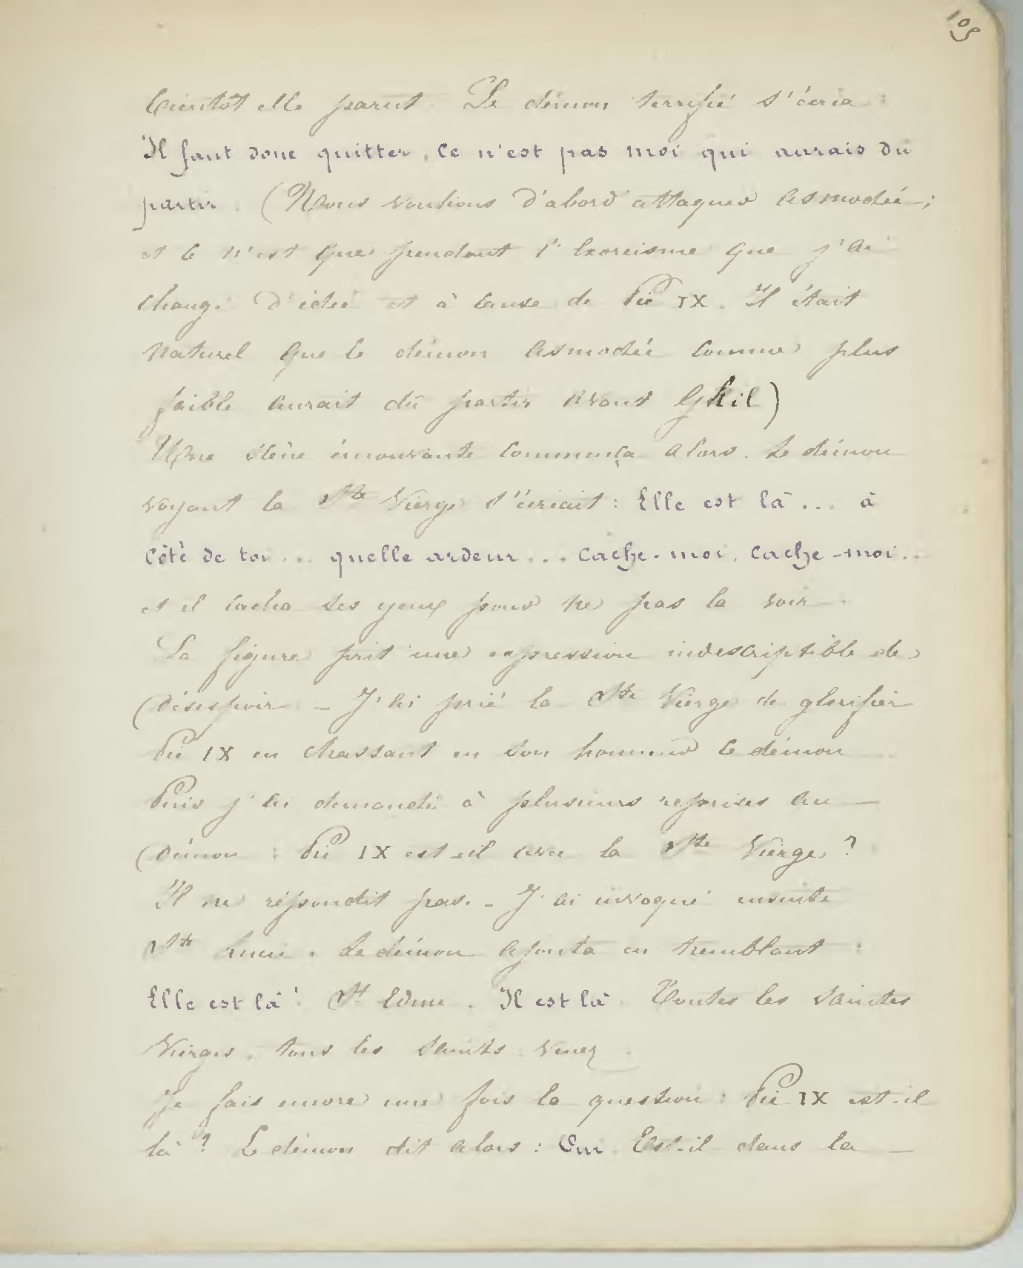 109
bientôt elle parut. Le démon terrifié s'écria :
Il faut donc quitter, ce n'est pas moi qui aurais dû
partir. (Nous voulions d'abord attaquer Asmodée ;
et ce n'est que pendant l'Exorcisme que j'ai
changé d'idée et à cause de Pie IX. Il était
naturel que le démon Asmodée comme plus
faible aurait dû partir avant Ghil)
Une scène émouvante commença alors. Le démon
voyant la Ste Vierge s'écriait : Elle est là ... à
côté de toi ... quelle ardeur ... cache-moi, cache-moi..
et il cacha ses yeux pour ne pas la voir.
La figure prit une expression indescriptible de
désespoir - J'ai prié la Ste Vierge de glorifier
Pie IX en chassant en son honneur le démon
Puis j'ai demandé à plusieurs reprises au
démon : Pie IX est-il avec la Ste Vierge ?
Il ne répondit pas. - J'ai invoqué ensuite
Ste Lucie. Le démon ajouta en tremblant :
Elle est là ! St Edme. Il est là. Toutes les Saintes
Vierges, tous les Saints venez.
Je fais encore une fois la question : Pie IX est-il
là ? Le démon dit alors : Oui. Est-il dans la